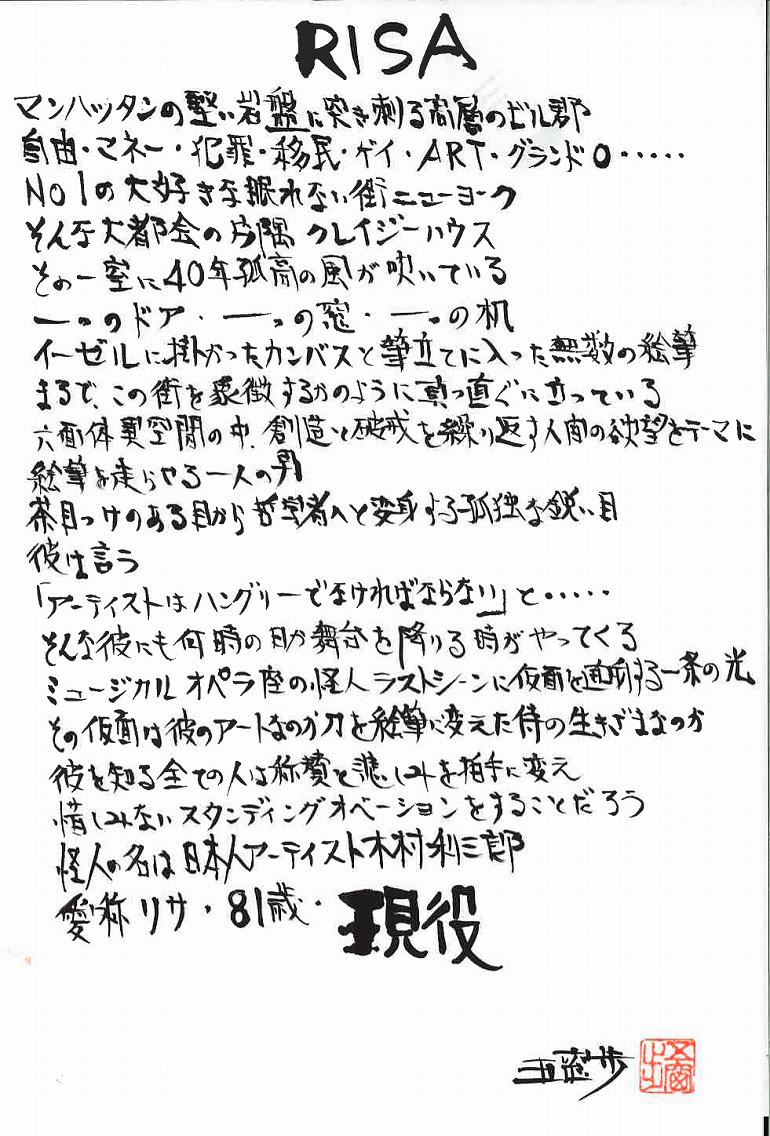 RISA
マンハッタンの堅い岩盤に突き刺る高層のビル郡
自由・マネー・犯罪・移民・ゲイ・ART・グランド0・・・・・
NO1の大好きな眠れない街ニューヨーク
そんな大都会の片隅 クレイジーハウス
その一室に40年孤高の風が吹いている
一つのドア・一つの窓・一つの机
イーゼルに掛かったカンバスと筆立てに入った無数の絵筆
まるで、この街を象徴するかのように真っ直ぐに立っている
六面体異空間の中、創造と破戒を繰り返す人間の欲望をテーマに
絵筆を走らせる一人の男
茶目っけのある目から哲学者へと変身する孤独な鋭い目
彼は言う
「アーティストはハングリーでなければならない」と・・・・・
そんな彼にも何時の日か舞台を降りる時がやってくる
ミュージカル オペラ座の怪人 ラストシーンに仮面を通す一条の光
その仮面は彼のアートなのか刀を絵筆に変えた侍の生きざまなのか
彼を知る全ての人は称賛と悲しみを拍手に変え
惜しみないスタンディングオベーションをすることだろう
怪人の名は日本人アーティスト木村利三郎
愛称リサ・81歳・現役